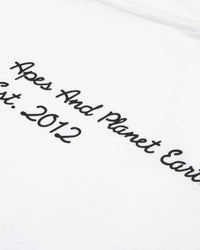 Apes And Planet Eart
Est. 2012